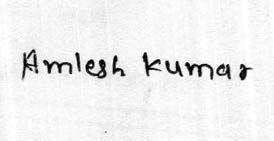 Amlesh Kumar